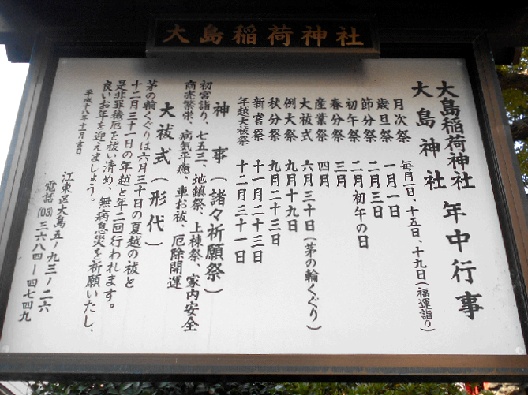 大島稲荷神社
大島稲荷神社
大島神社
年中行事
月次祭 毎月一日、十五日、十九日(福運詣り)
歳旦祭 一月一日
節分祭 二月三日
初午祭 二月初午の日
春分祭 三月
産業祭 四月
大祓式 六月三十日(茅の輪くぐり)
例大祭 九月十九日
秋分祭 九月二十三日
新嘗祭 十一月二十三日
年越大祓祭 十二月三十一日
神事(諸々祈願祭)
初宮詣り、七五三、地鎮祭、上棟祭、家内安全
商売繁栄、病気平癒、車お祓、厄除開運
大祓式(形代)
茅の輪くぐりは六月三十日の夏越の祓と
十二月三十一日の年越と年二回行われます。
是非罪穢厄を祓い清め、無病息災を祈願いたし、
良いお年を迎えましょう。
平成十八年十二月吉日
江東区大島五ー九三ー二六
電話(03)三六八四ー四七四九